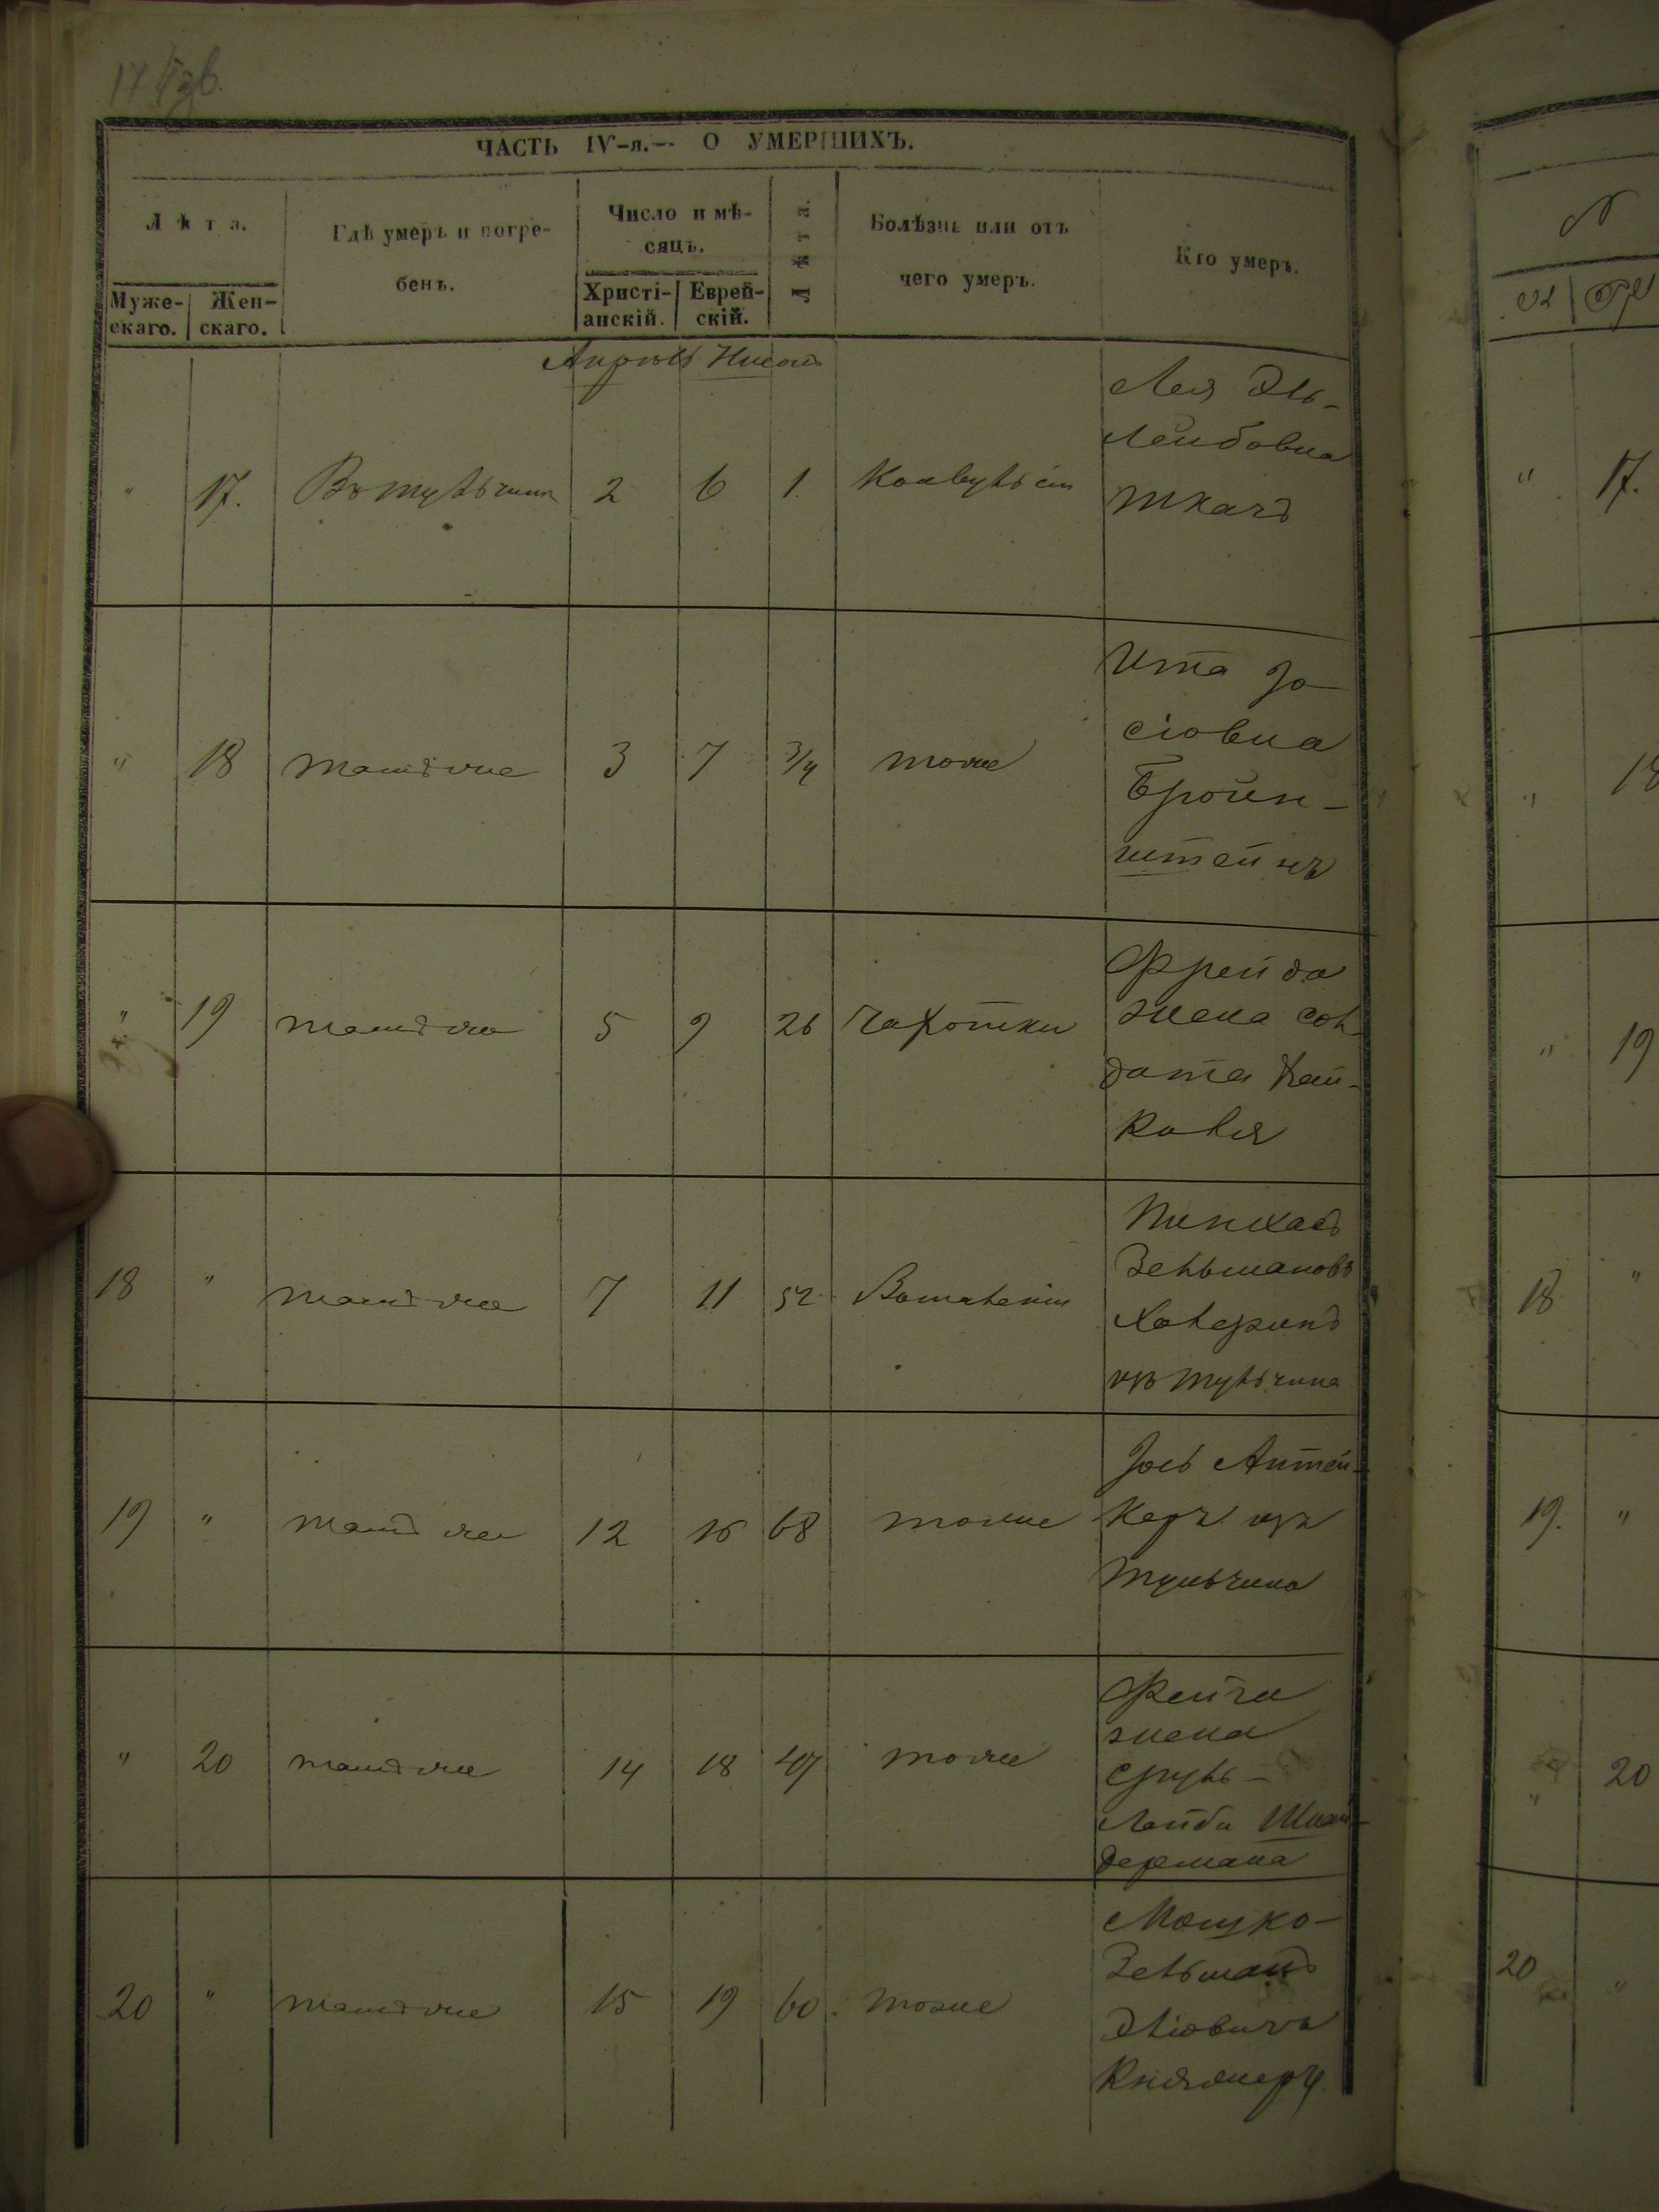 17
ЧАСТЬ IV-я.— О УМЕРШИХЪ.
Лѣта.
Муже-скаго. Жен-скаго.
Гдѣ умеръ и погре-
бенъ.
Число и мѣ-
сяцъ.
Христі-анскій. Еврей-скій.
Лѣта.
Болѣзнь или отъ
чего умеръ.
Кто умеръ.
Апрѣль Нисонъ
" 17. Въ Тульчинѣ 2 6 1 Конвульсіи
Лея Эль-
Лейбовна
Ткачъ
" 18 тамъ же 3 7 3/4 тоже
Ита Іо-
сіовна
Бройн-
штейнъ
" 19 тамъ же 5 9 26 Чахотки
Фрейда
жена сол-
дата
18 " тамъ же 7 11 52 Воспаленіи
Пинхасъ
Зельмановъ
Хаверинъ
изъ Тульчина
19 " тамъ же 12 16 68 тоже
Іось Аптей-
керъ изъ
Тульчина
" 20 тамъ же 14 18 47 тоже
Фейга
жена
Сруль-
Лейба Шнай-
дермана
20 " тамъ же 15 19 60 тоже
Мошко-
Зельманъ
Эліовичъ
Княжмеръ
17.
18
19
18 "
19. "
20
20 "